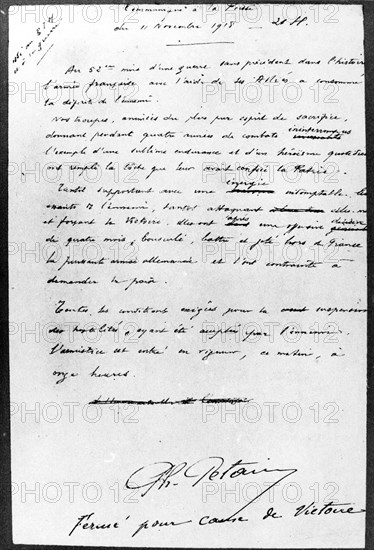 Communiqué à la Presse
du 11 Novembre 1918 - 20 H.
Au 52ème mois d'une guerre sans précédent dans l'histoire
l'armée française avec l'aide de ses Alliés a consommé
la défaite de l'ennemi.
Nos troupes, animées du plus pur esprit de sacrifice,
donnant pendant quatre années de combats ininterrompus
l'exemple d'une sublime endurance et d'un héroïsme quotidien
ont rempli la tâche que leur avait confiée la Patrie.
Tantôt supportant avec une énergie indomptable les
assauts de l'ennemi, tantôt attaquant elles-m
et forçant la Victoire, elles ont après une offensive décisive
de quatre mois, bousculé, battu et jeté hors de France
la puissante armée allemande et l'ont contrainte à
demander la paix.
Toutes les conditions exigées pour la suspension
des hostilités, ayant été acceptées par l'ennemi
l'armistice est entré en vigueur, ce matin, à
onze heures.
Ph. Pétain
Fermé pour cause de Victoire
PHOTO12